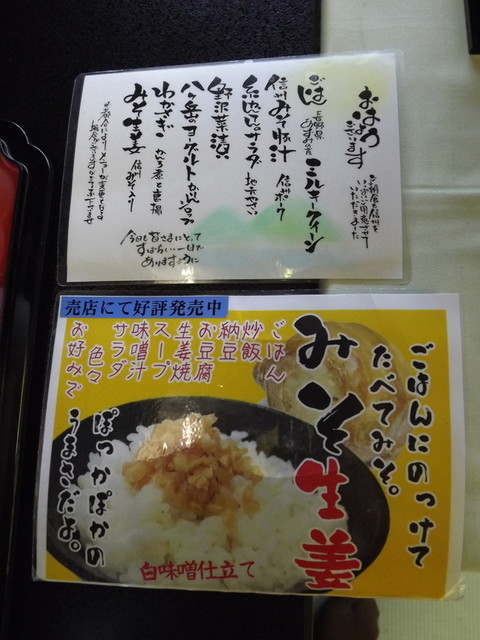 おはよう
ございます
ごはん 長野県
ミルキークイーン
信州みそ豚汁 信州ポーク
野沢菜漬
八ヶ岳のヨーグルト
わかさぎ
みそ生姜 信州みそ入り
今日も皆さまにとって
すばらしい一日で
ありますように
売店にて好評発売中
ごはんにのっけて
たべてみそ。
みそ生姜
ごはん
炒飯
納豆
お豆腐
生姜焼
スープ
味噌汁
サラダ
色々
お好みで
ぽっかぽかの
うまさだよ。
白味噌仕立て